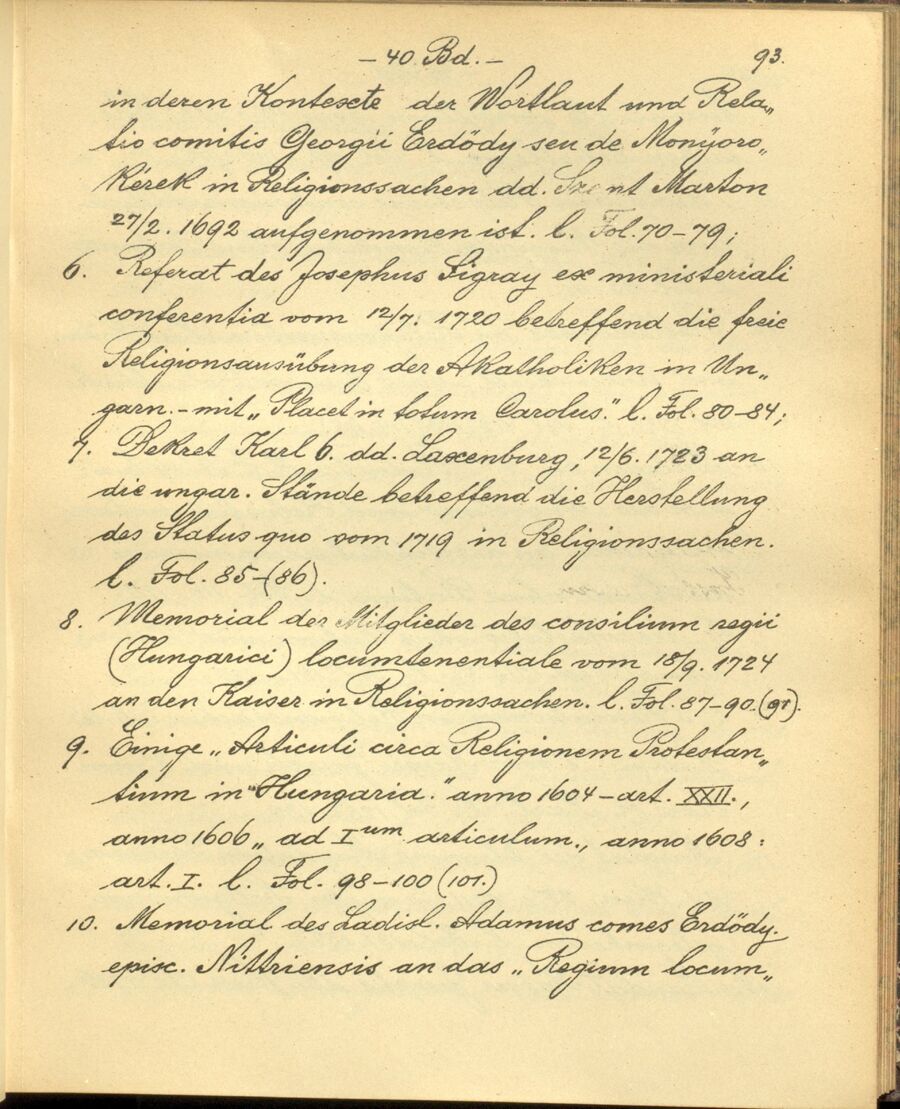 – 40 Bd. –
93.
in deren Kontexte der Wortlaut und Rela„
tio comitis Georgii Erdödy seu de Monÿoro„
Kérek in Religionssachen dd. Szent Marton
27/2. 1692 aufgenommen ist. l. Fol. 70–79;
6. Referat des Josephus Sigray ex ministeriali
conferentia vom 12/7. 1720 betreffend die freie
Religionsausübung der Akatholiken in Un„
garn. – mit „Placet in totum Carolus." l. Fol. 80–84;
7. Dekret Karl 6. dd. Laxenburg, 12/6. 1723 an
die ungar. Stände betreffend die Herstellung
des Status quo vom 1719 in Religionssachen.
l. Fol. 85–(86).
8. Memorial der Mitglieder des consilium regii
(Hungarici) locumtenentiale vom 18/9. 1724
an den Kaiser in Religionssachen. l. Fol. 87–90.(91).
9. Einige „Articuli circa Religionem Protestan„
tium in "Hungaria." anno 1604 – art. XXII.,
anno 1606 „ad Ium articulum., anno 1608:
art. I. l. Fol. 98–100 (101.)
10. Memorial des Ladisl. Adamus comes Erdödy.
episc. Nittriensis an das „Regium locum„